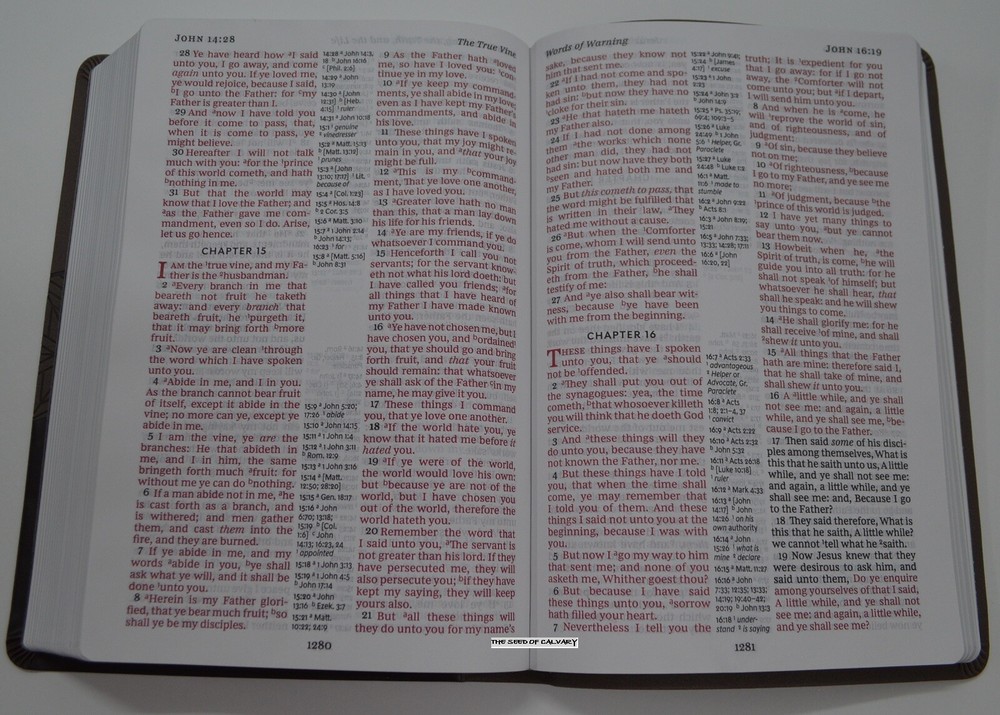 JOHN 14:28
The True Vine
28 Ye have heard how ᵃI said
unto you, I go away, and come
again unto you. If ye loved me,
ye would rejoice, because I said,
ᵇI go unto the Father: for ᶜmy
Father is greater than I.
29 And ᵃnow I have told you
before it come to pass, that,
when it is come to pass, ye
might believe.
30 Hereafter I will not talk
much with you: ᵃfor the ¹prince
of this world cometh, and hath
ᵇnothing in me.
31 But that the world may
know that I love the Father; and
ᵃas the Father gave me com-
mandment, even so I do. Arise,
let us go hence.
CHAPTER 15
I AM the ¹true vine, and my Fa-
ther is the ²husbandman.
2 ᵃEvery branch in me that
beareth not fruit he taketh
away: and every branch that
beareth fruit, he ¹purgeth it,
that it may bring forth ᵇmore
fruit.
3 ᵃNow ye are clean ¹through
the word which I have spoken
unto you.
4 ᵃAbide in me, and I in you.
As the branch cannot bear fruit
of itself, except it abide in the
vine; no more can ye, except ye
abide in me.
5 I am the vine, ye are the
branches: He that abideth in
me, and I in him, the same
bringeth forth much ᵃfruit: for
without me ye can do ᵇnothing.
6 If a man abide not in me, ᵃhe
is cast forth as a branch, and
is withered; and men gather
them, and cast them into the
fire, and they are burned.
7 If ye abide in me, and my
words ᵃabide in you, ᵇye shall
ask what ye will, and it shall be
done ¹unto you.
8 ᵃHerein is my Father glori-
fied, that ye bear much fruit; ᵇso
shall ye be my disciples.
9 As the Father hath ᵃloved
me, so have I loved you: ¹con-
tinue ye in my love.
10 ᵃIf ye keep my command-
ments, ye shall abide in my love;
even as I have kept my Father's
commandments, and abide in
his love.
11 These things have I spoken
unto you, that my joy might re-
main in you, and ᵃthat your joy
might be full.
12 ᵃThis is my ᵇcommand-
ment, That ye love one another,
as I have loved you.
13 ᵃGreater love hath no man
than this, that a man lay down
his life for his friends.
14 ᵃYe are my friends, if ye do
whatsoever I command you.
15 Henceforth I call you not
servants; for the servant know-
eth not what his lord doeth: but
I have called you friends; ᵃfor
all things that I have heard of
my Father I have made known
unto you.
16 ᵃYe have not chosen me, but I
have chosen you, and ᵇordained¹
you, that ye should go and bring
forth fruit, and that your fruit
should remain: that whatsoever
ye shall ask of the Father ᶜin my
name, he may give it you.
17 These things I command
you, that ye love one another.
18 ᵃIf the world hate you, ye
know that it hated me before it
hated you.
19 ᵃIf ye were of the world,
the world would love his own:
but ᵇbecause ye are not of the
world, but I have chosen you
out of the world, therefore the
world hateth you.
20 Remember the word that
I said unto you, ᵃThe servant is
not greater than his lord. If they
have persecuted me, they will
also persecute you; ᵇif they have
kept my saying, they will keep
yours also.
21 But ᵃall these things will
they do unto you for my name's
1280
Words of Warning
JOHN 16:19
sake, because they know not
him that sent me.
22 ᵃIf I had not come and spo-
ken unto them, they had not
had sin: ᵇbut now they have no
¹cloke for their sin.
23 ᵃHe that hateth me hateth
my Father also.
24 If I had not done among
them ᵃthe works which none
other man did, they had not
had sin: but now have they both
ᵇseen and hated both me and
my Father.
25 But this cometh to pass, that
the word might be fulfilled that
is written in their law, ᵃThey
hated me without a cause.
26 ᵃBut when the ¹Comforter
is come, whom I will send unto
you from the Father, even the
Spirit of truth, which proceed-
eth from the Father, ᵇhe shall
testify of me:
27 And ᵃye also shall bear wit-
ness, because ᵇye have been
with me from the beginning.
CHAPTER 16
THESE things have I spoken
unto you, that ye ᵃshould
not be ¹offended.
2 ᵃThey shall put you out of
the synagogues: yea, the time
cometh, ᵇthat whosoever killeth
you will think that he doeth God
service.
3 And ᵃthese things will they
do unto you, because they have
not known the Father, nor me.
4 But these things have I told
you, that when the time shall
come, ye may remember that
I told you of them. And these
things I said not unto you at the
beginning, because I was with
you.
5 But now I ᵃgo my way to him
that sent me; and none of you
asketh me, Whither goest thou?
6 But because I have said
these things unto you, ᵃsorrow
hath filled your heart.
7 Nevertheless I tell you the
truth; It is ¹expedient for you
that I go away: for if I go not
away, the ᵃComforter will not
come unto you; but ᵇif I depart,
I will send him unto you.
8 And when he is ᵃcome, he
will ¹reprove the world of sin,
and of righteousness, and of
judgment:
9 ᵃOf sin, because they believe
not on me;
10 ᵃOf righteousness, ᵇbecause
I go to my Father, and ye see me
no more;
11 ᵃOf judgment, because ᵇthe
¹prince of this world is judged.
12 I have yet many things to
say unto you, ᵃbut ye cannot
bear them now.
13 Howbeit when he, ᵃthe
Spirit of truth, is come, ᵇhe will
guide you into all truth: for he
shall not speak ¹of himself; but
whatsoever he shall hear, that
shall he speak: and he will shew
you things to come.
14 ᵃHe shall glorify me: for he
shall receive ¹of mine, and shall
²shew it unto you.
15 ᵃAll things that the Father
hath are mine: therefore said I,
that he shall take of mine, and
shall shew it unto you.
16 A ᵃlittle while, and ye shall
not see me: and again, a little
while, and ye shall see me, ᵇbe-
cause I go to the Father.
17 Then said some of his disci-
ples among themselves, What is
this that he saith unto us, A little
while, and ye shall not see me:
and again, a little while, and ye
shall see me: and, Because I go
to the Father?
18 They said therefore, What is
this that he saith, A little while?
we cannot ¹tell what he ²saith.
19 Now Jesus knew that they
were desirous to ask him, and
said unto them, Do ye enquire
among yourselves of that I said,
A little while, and ye shall not
see me: and again, a little while,
and ye shall see me?
1281
THE SEED OF CALVARY